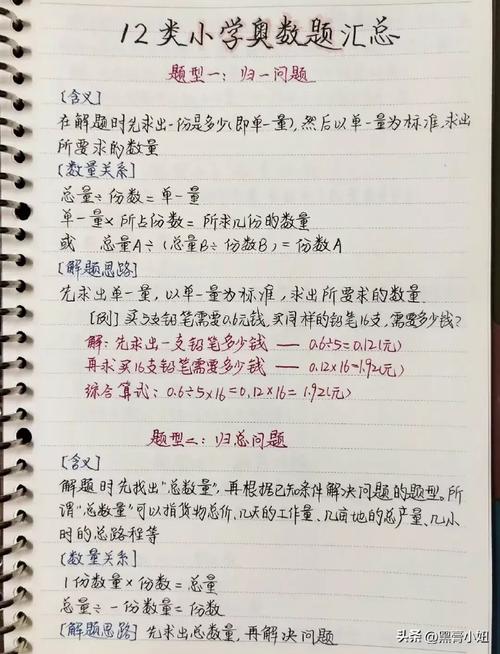 12类小学奥数题汇总
题型一：归一问题
[含义]
在解题时先求出一份是多少(即单一量)，然后以单一量为标准，求出
所要求的数量
[数量关系]
总量÷份数=单一量
单一量×所占份数=所求几份的数量
或 总量A÷(总量B÷份数B)=份数A
[解题思路]
先求出单一量，以单一量为标准，求出所要求的数量.
[例]买5支铅笔需要0.6元钱，买同样的铅笔16支，需要多少钱？
解：先求出一支铅笔多少钱 — 0.6÷5=0.12(元)
再求买16支铅笔需要多少钱 — 0.12×16=1.92(元)
综合算式：0.6÷5×16=0.12×16=1.92(元)
题型二：归总问题
[含义]
解题时先找出"总数量"，再根据已知条件解决问题的题型。所
谓"总数量"可以指货物总价、几天的工作量、几亩地的总产量、几小
时的总路程等
[数量关系]
1份数量×份数=总量
总量÷一份数量=份数
[解题思路] 先求出总数量，再解决问题
头条@黑膏小妞